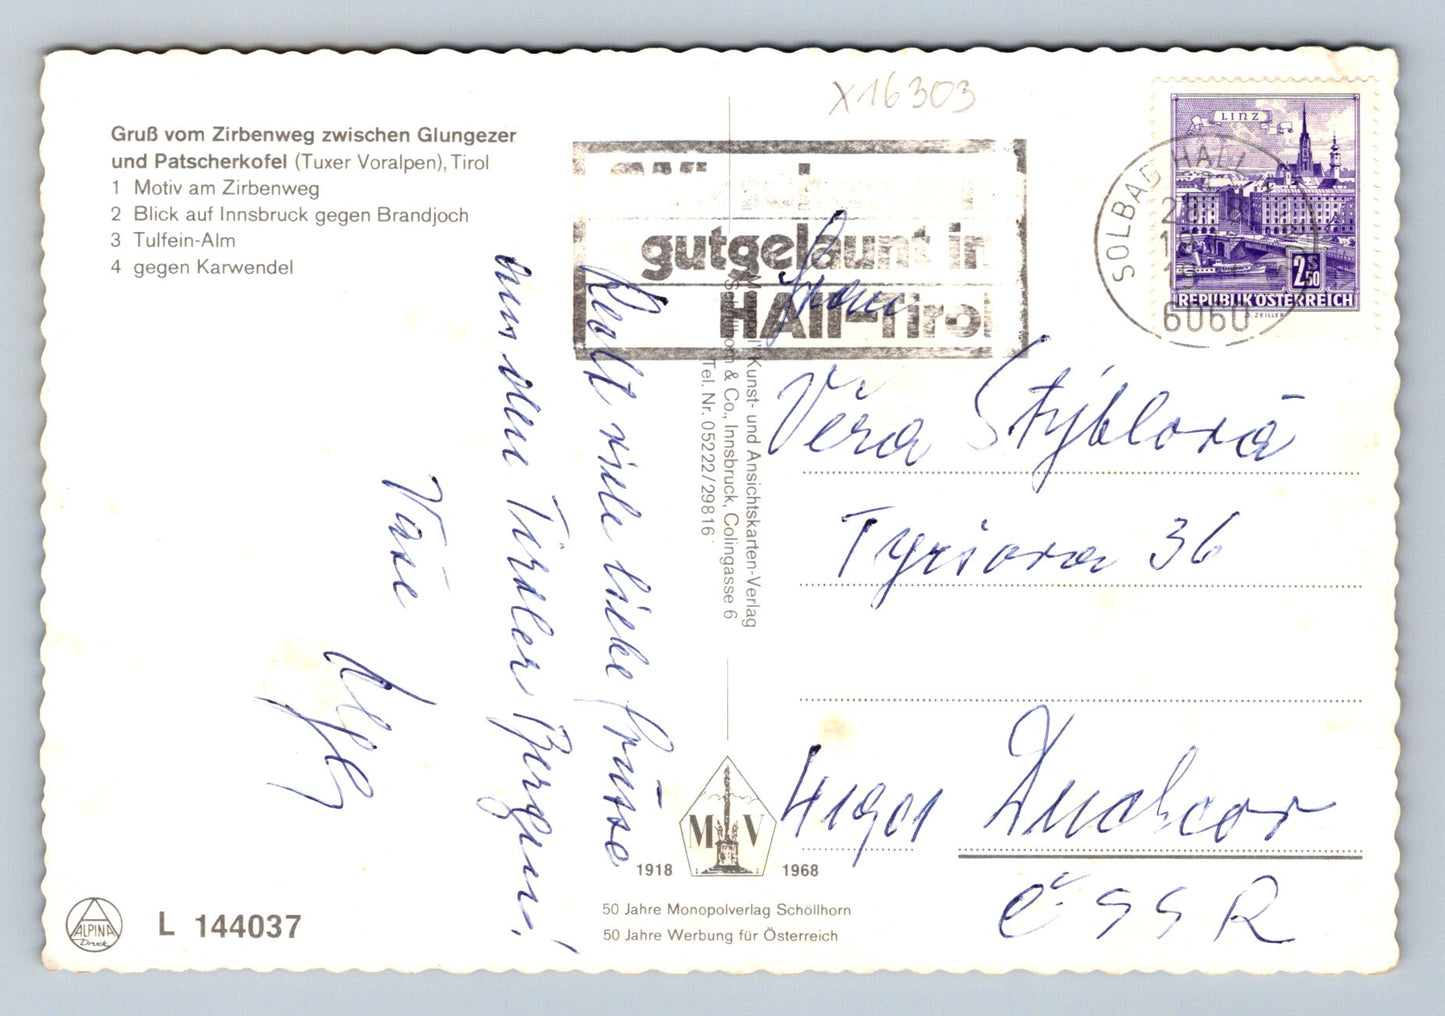 x16303
Gruß vom Zirbenweg zwischen Glungezer
und Patscherkofel (Tuxer Voralpen), Tirol
1 Motiv am Zirbenweg
2 Blick auf Innsbruck gegen Brandjoch
3 Tulfein-Alm
4 gegen Karwendel
Recht viele liebe Grüsse
aus den Tiroler Bergen!
Vaše
gutgelaunt in
HAll-Tirol
SOLBAD HALL
6060
LINZ
2S50
REPUBLIK ÖSTERREICH
"Monopol" Kunst- und Ansichtskarten-Verlag
Schöllhorn & Co., Innsbruck, Colingasse 6
Tel. Nr. 05222/29816
Věra Stýblová
36
ČSSR
M V
1918 1968
50 Jahre Monopolverlag Schöllhorn
50 Jahre Werbung für Österreich
ALPINA
Druck
L 144037